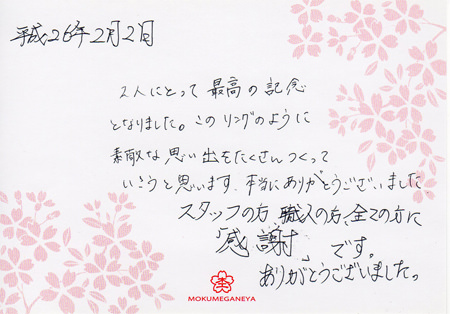 平成26年2月2日
2人にとって最高の記念
となりました。このリングのように
素敵な思い出をたくさんつくって
いこうと思います。本当にありがとうございました
スタッフの方、職人の方、全ての方に
「感謝」です。
ありがとうございました。
MOKUMEGANEYA